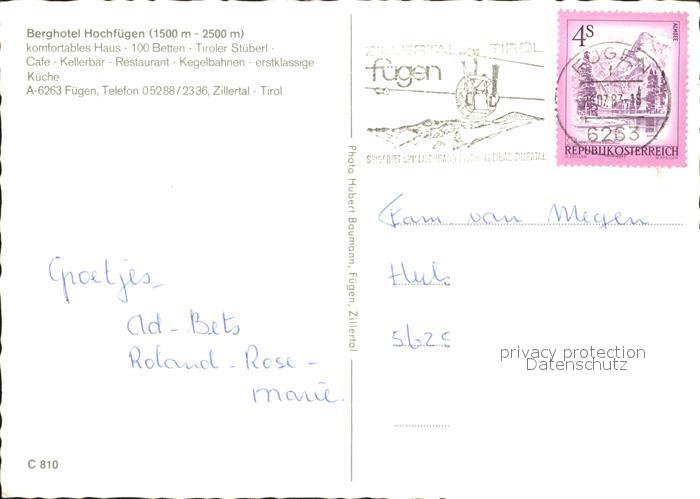 Berghotel Hochfügen (1500 m - 2500 m)
komfortables Haus · 100 Betten · Tiroler Stüberl ·
Cafe · Kellerbar · Restaurant · Kegelbahnen · erstklassige
Küche
A-6263 Fügen, Telefon 05288/2336, Zillertal · Tirol
ZILLERTAL TIROL
fügen
4S
ALMSEE
FÜGEN
6263
REPUBLIK ÖSTERREICH
Photo Hubert Baumann, Fügen, Zillertal
Fam. van Megen
5625
Groetjes
Ad - Bets
Roland - Rose -
marie.
privacy protection
Datenschutz
C 810